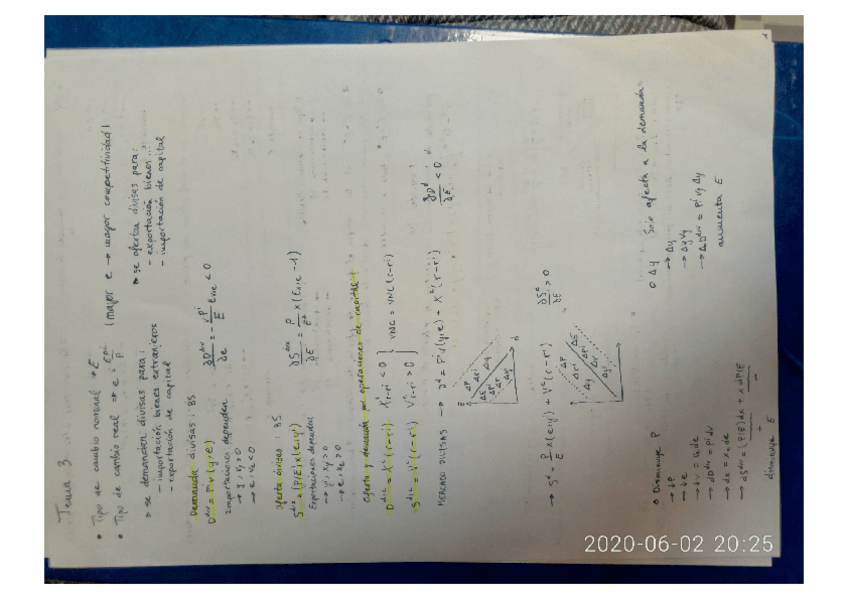 Tema 3
• Tipo de cambio nominal → E
• Tipo de cambio real → e = EPⁱ/P (mayor e → mayor competitividad)
→ se demandan divisas para:
- importación bienes extranjeros
- exportación de capital
→ se ofertan divisas para:
- exportación bienes...
- importación de capital
Demanda divisas: BS
Dᵈⁱᵛ = Pⁱ v (y, e)
∂Dᵈⁱᵛ/∂e = - vPⁱ/E Eve < 0
Importaciones dependen
→ y, vy > 0
→ e, ve < 0
Oferta divisas: BS
Sᵈⁱᵛ = (P/E) x (e, yⁱ)
∂Sᵈⁱᵛ/∂E = P/E² x (Ex,e - 1)
Exportaciones dependen
→ yⁱ, xy > 0
→ e, xe > 0
Oferta y demanda por operaciones de capital
Dᵈⁱᵛ = Xᵏ (r-rⁱ) Xᵏr-rⁱ < 0
Sᵈⁱᵛ = Vᵏ (r-rⁱ) Vᵏr-rⁱ > 0
VNC = VNC (r-rⁱ)
MERCADO DIVISAS → Dᵈ = Pⁱ v (y, e) + Xᵏ (r-rⁱ) ; ∂Dᵈ/∂E < 0
→ Sᵈ = P/E x (e, yⁱ) + Vᵏ (r-rⁱ) ∂Sᵈ/∂E > 0
o Disminuye P
→ dP
→ de
→ dv = ve de
→ dDᵈⁱᵛ = Pⁱ dv
→ dx = xe de
→ dSᵈⁱᵛ = (P/E) dx + x dP/E
+ -
disminuye E
o Δy Solo afecta a la demanda
→ Δy
→ Δy vy
→ ΔDᵈⁱᵛ = Pⁱ vy Δy
aumenta E
2020-06-02 20:25